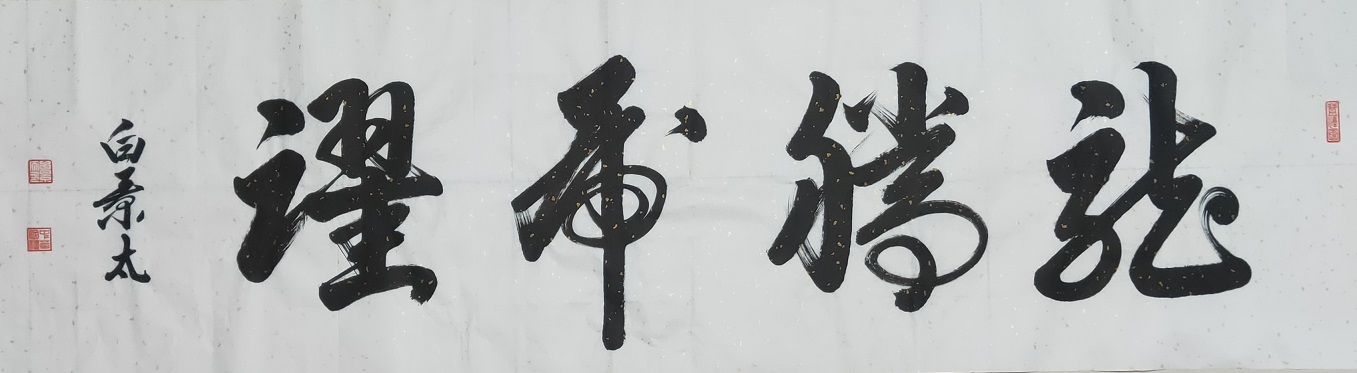 龍騰虎躍
白景太